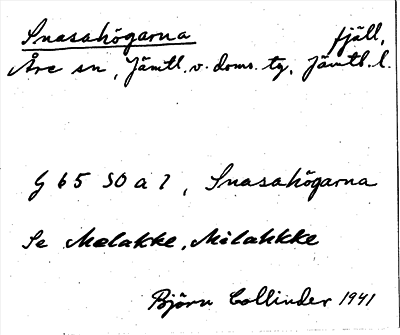 Snasahögarna fjäll,
Åre sn, Jämtl. v. doms. tg, Jämtl. l.
G 65 SO a 1, Snasahögarna
Se Mælakke, Milahkke
Björn Collinder 1941